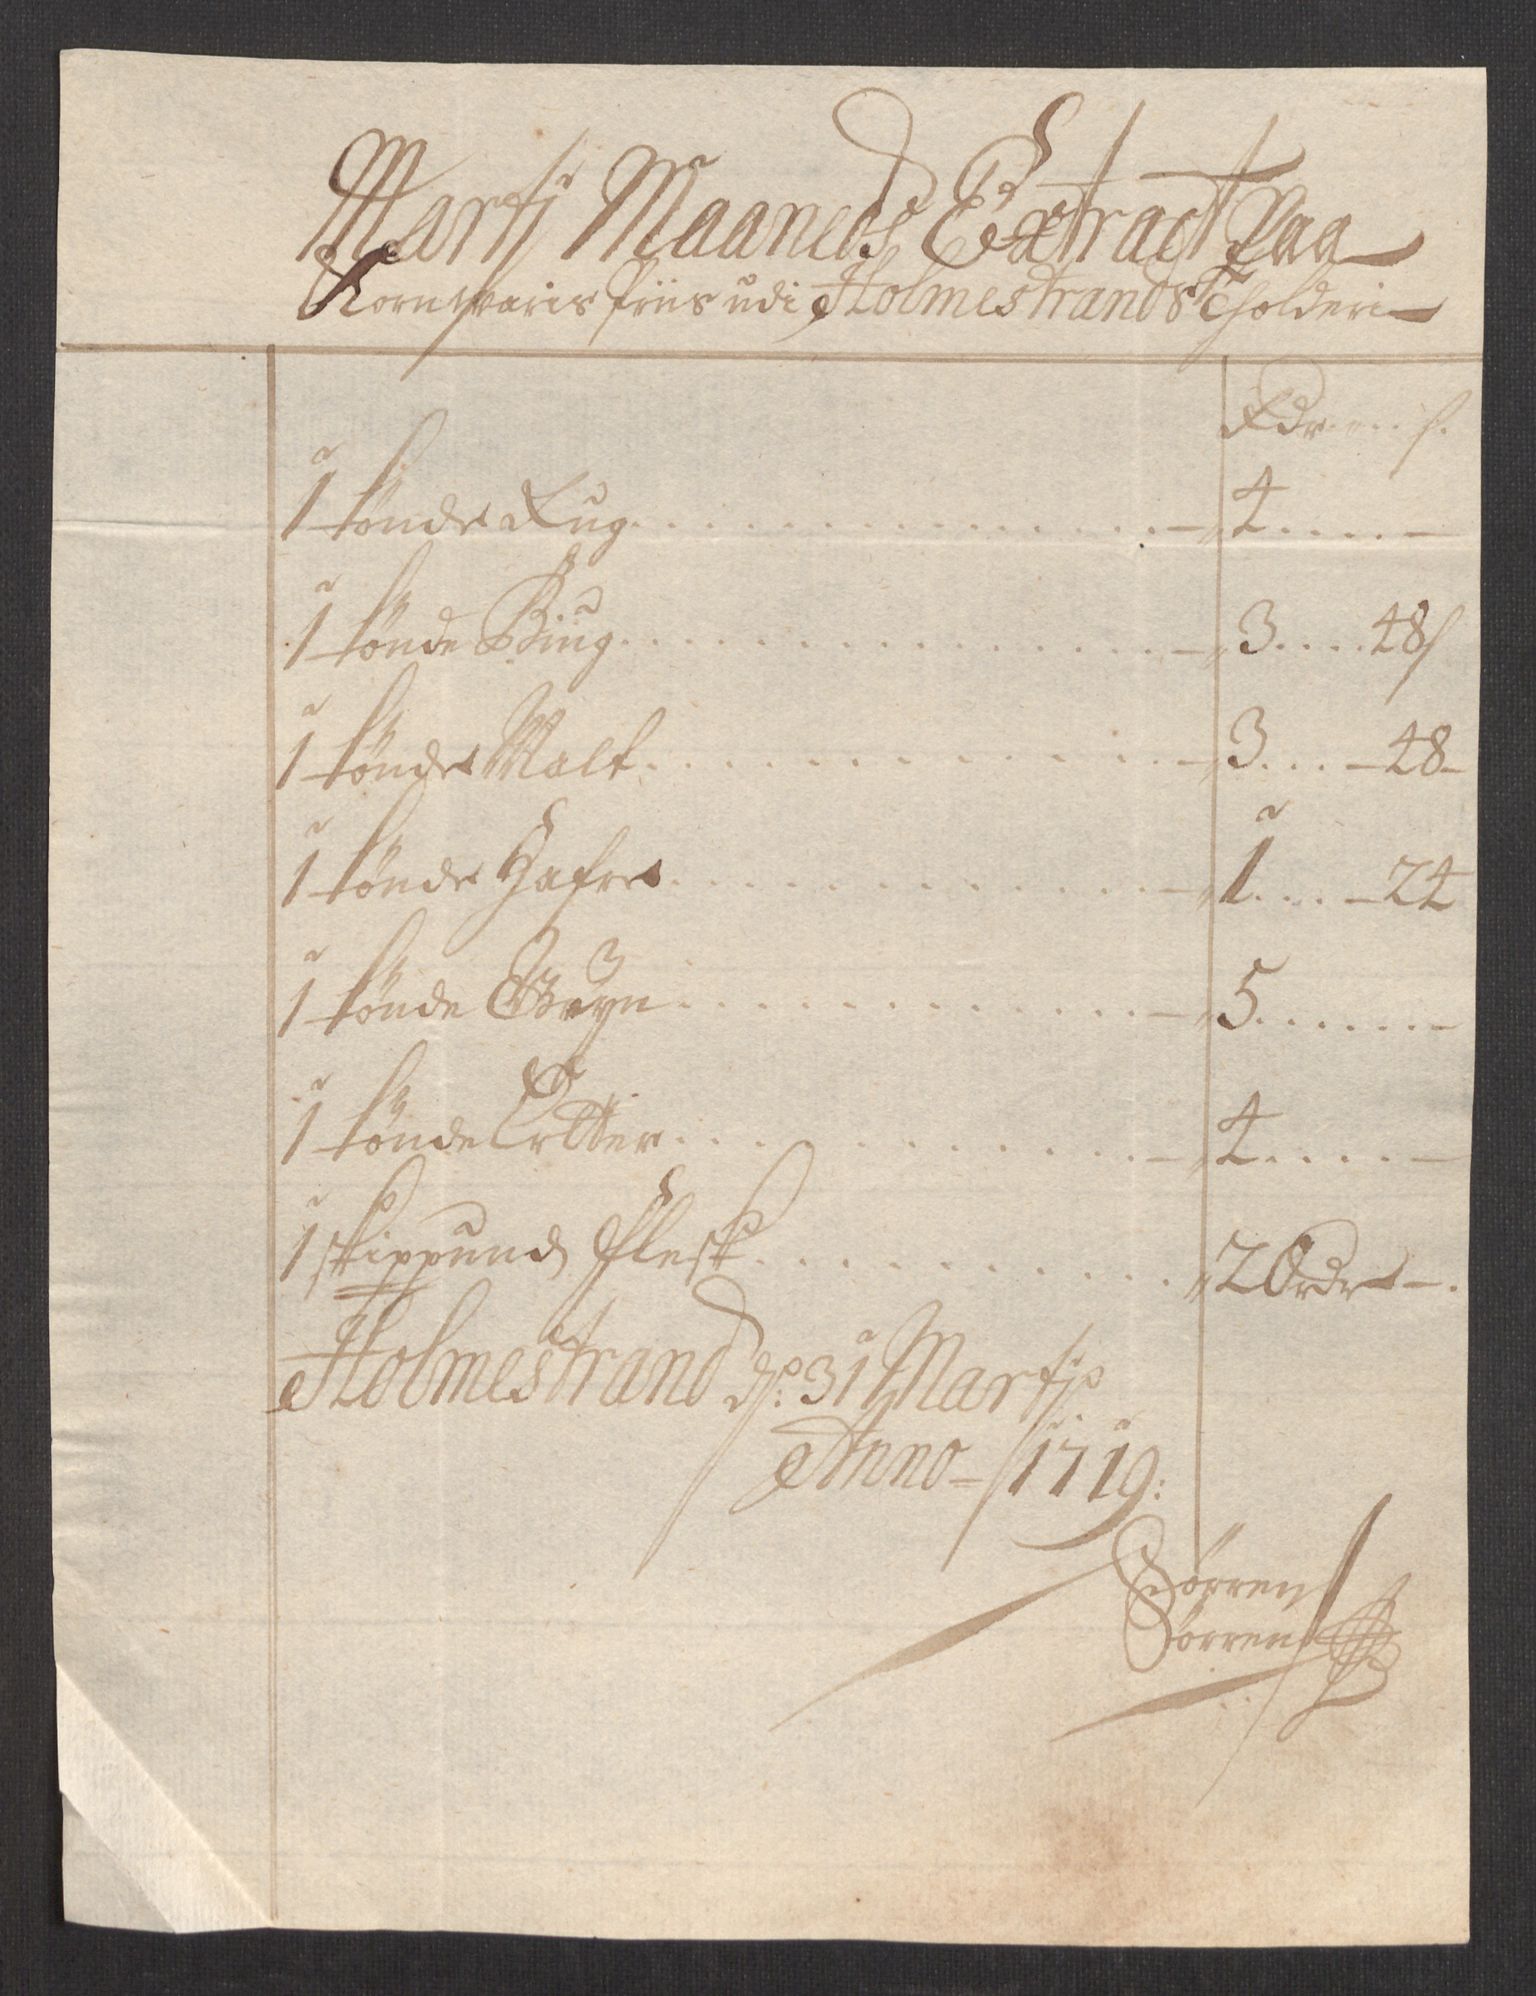 Martj Maaneds Extract Paa
Kornwaris Priis udi Holmestrands Tholderi
Rdr ... s.
1 tønde Rug 4
1 tønde Biug 3 48s
1 tønde Malt 3 48
1 tønde Hafre 1 24
1 tønde Gryn 5
1 tønde Ertter 4
1 skippund Flesk 20rdr
Holmestrand d: 31 Martj
Anno 1719:
Sørren
Sørrens